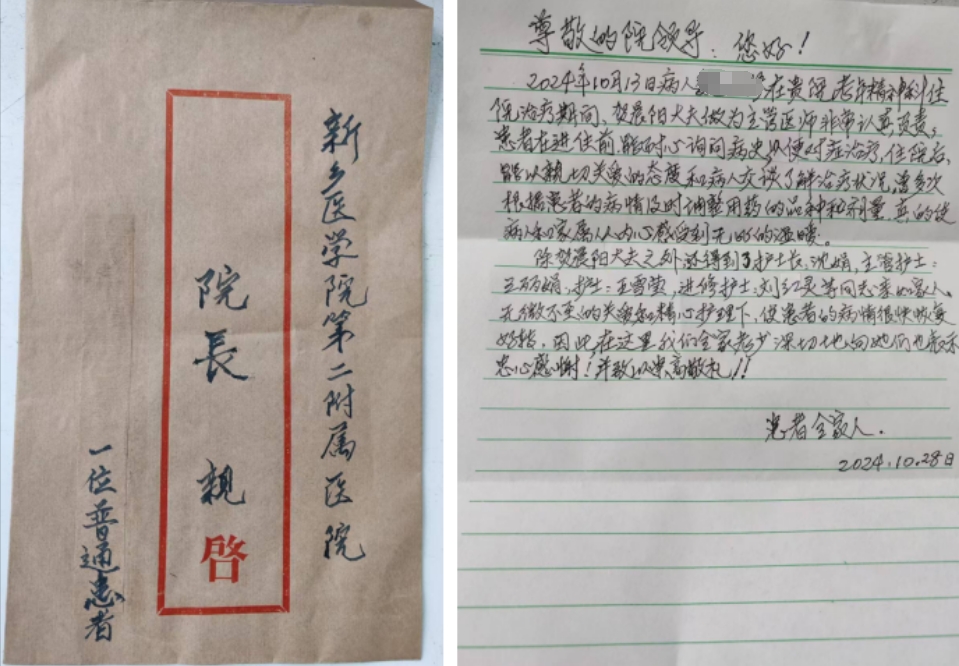 新乡医学院第二附属医院
院長 親啓
一位普通患者
尊敬的院领导：您好！
2024年10月13日病人 在贵院老年精神科住
院治疗期间、贺晨阳大夫做为主管医师非常认真负责，
患者在进住前，能耐心询问病史，以便对症治疗，住院后，
能以亲切关爱的态度和病人交谈了解治疗状况，曾多次
根据患者的病情及时调整用药的品种和剂量，真的使
病人和家属从内心感受到无比的温暖。
除贺晨阳大夫之外还得到了护士长，沈娟，主管护士：
王丽娟，护士：王雪莹，进修护士，刘红灵等同志亲如家人，
无微不至的关爱和精心护理下，使患者的病情很快恢复
好转，因此，在这里我们全家老少深切地向她们也表示
忠心感谢！并致以崇高敬礼！！
患者全家人．
2024.10.28日